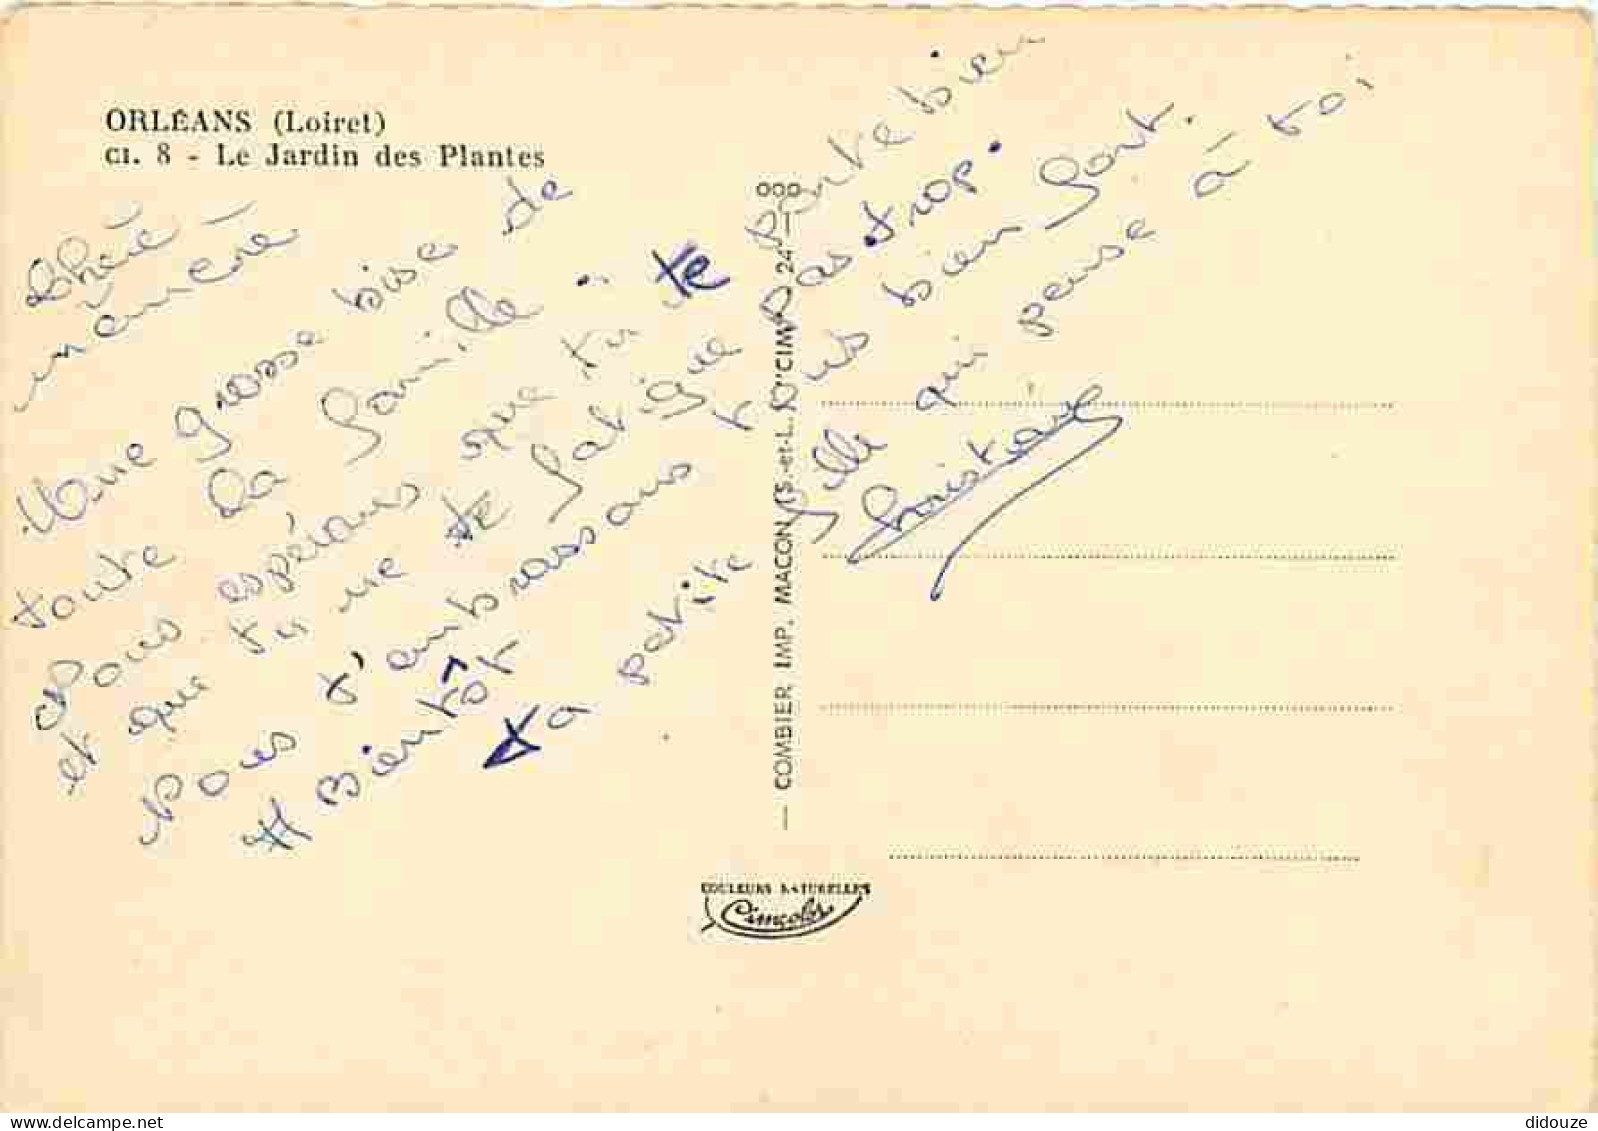 ORLÉANS (Loiret)
CI. 8 - Le Jardin des Plantes
Chère
mémère
Une grosse bise de
toute la famille.
Nous espérons que tu te porte bien
et que tu ne te fatigue pas trop.
Nous t'embrassons tous bien fort.
A Bientôt
Ta petite fille qui pense à toi
Christane
— COMBIER IMP. MACON (S.-et-L.) "CIM" 24 — 000
COULEURS NATURELLES
Cimcolor
didouze